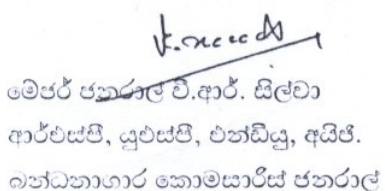 මේජර් ජනරාල් වී.ආර්. සිල්වා
ආර්එස්පී, යූඑස්පී, එන්ඩීයු, අයිජී.
බන්ධනාගාර කොමසාරිස් ජනරාල්